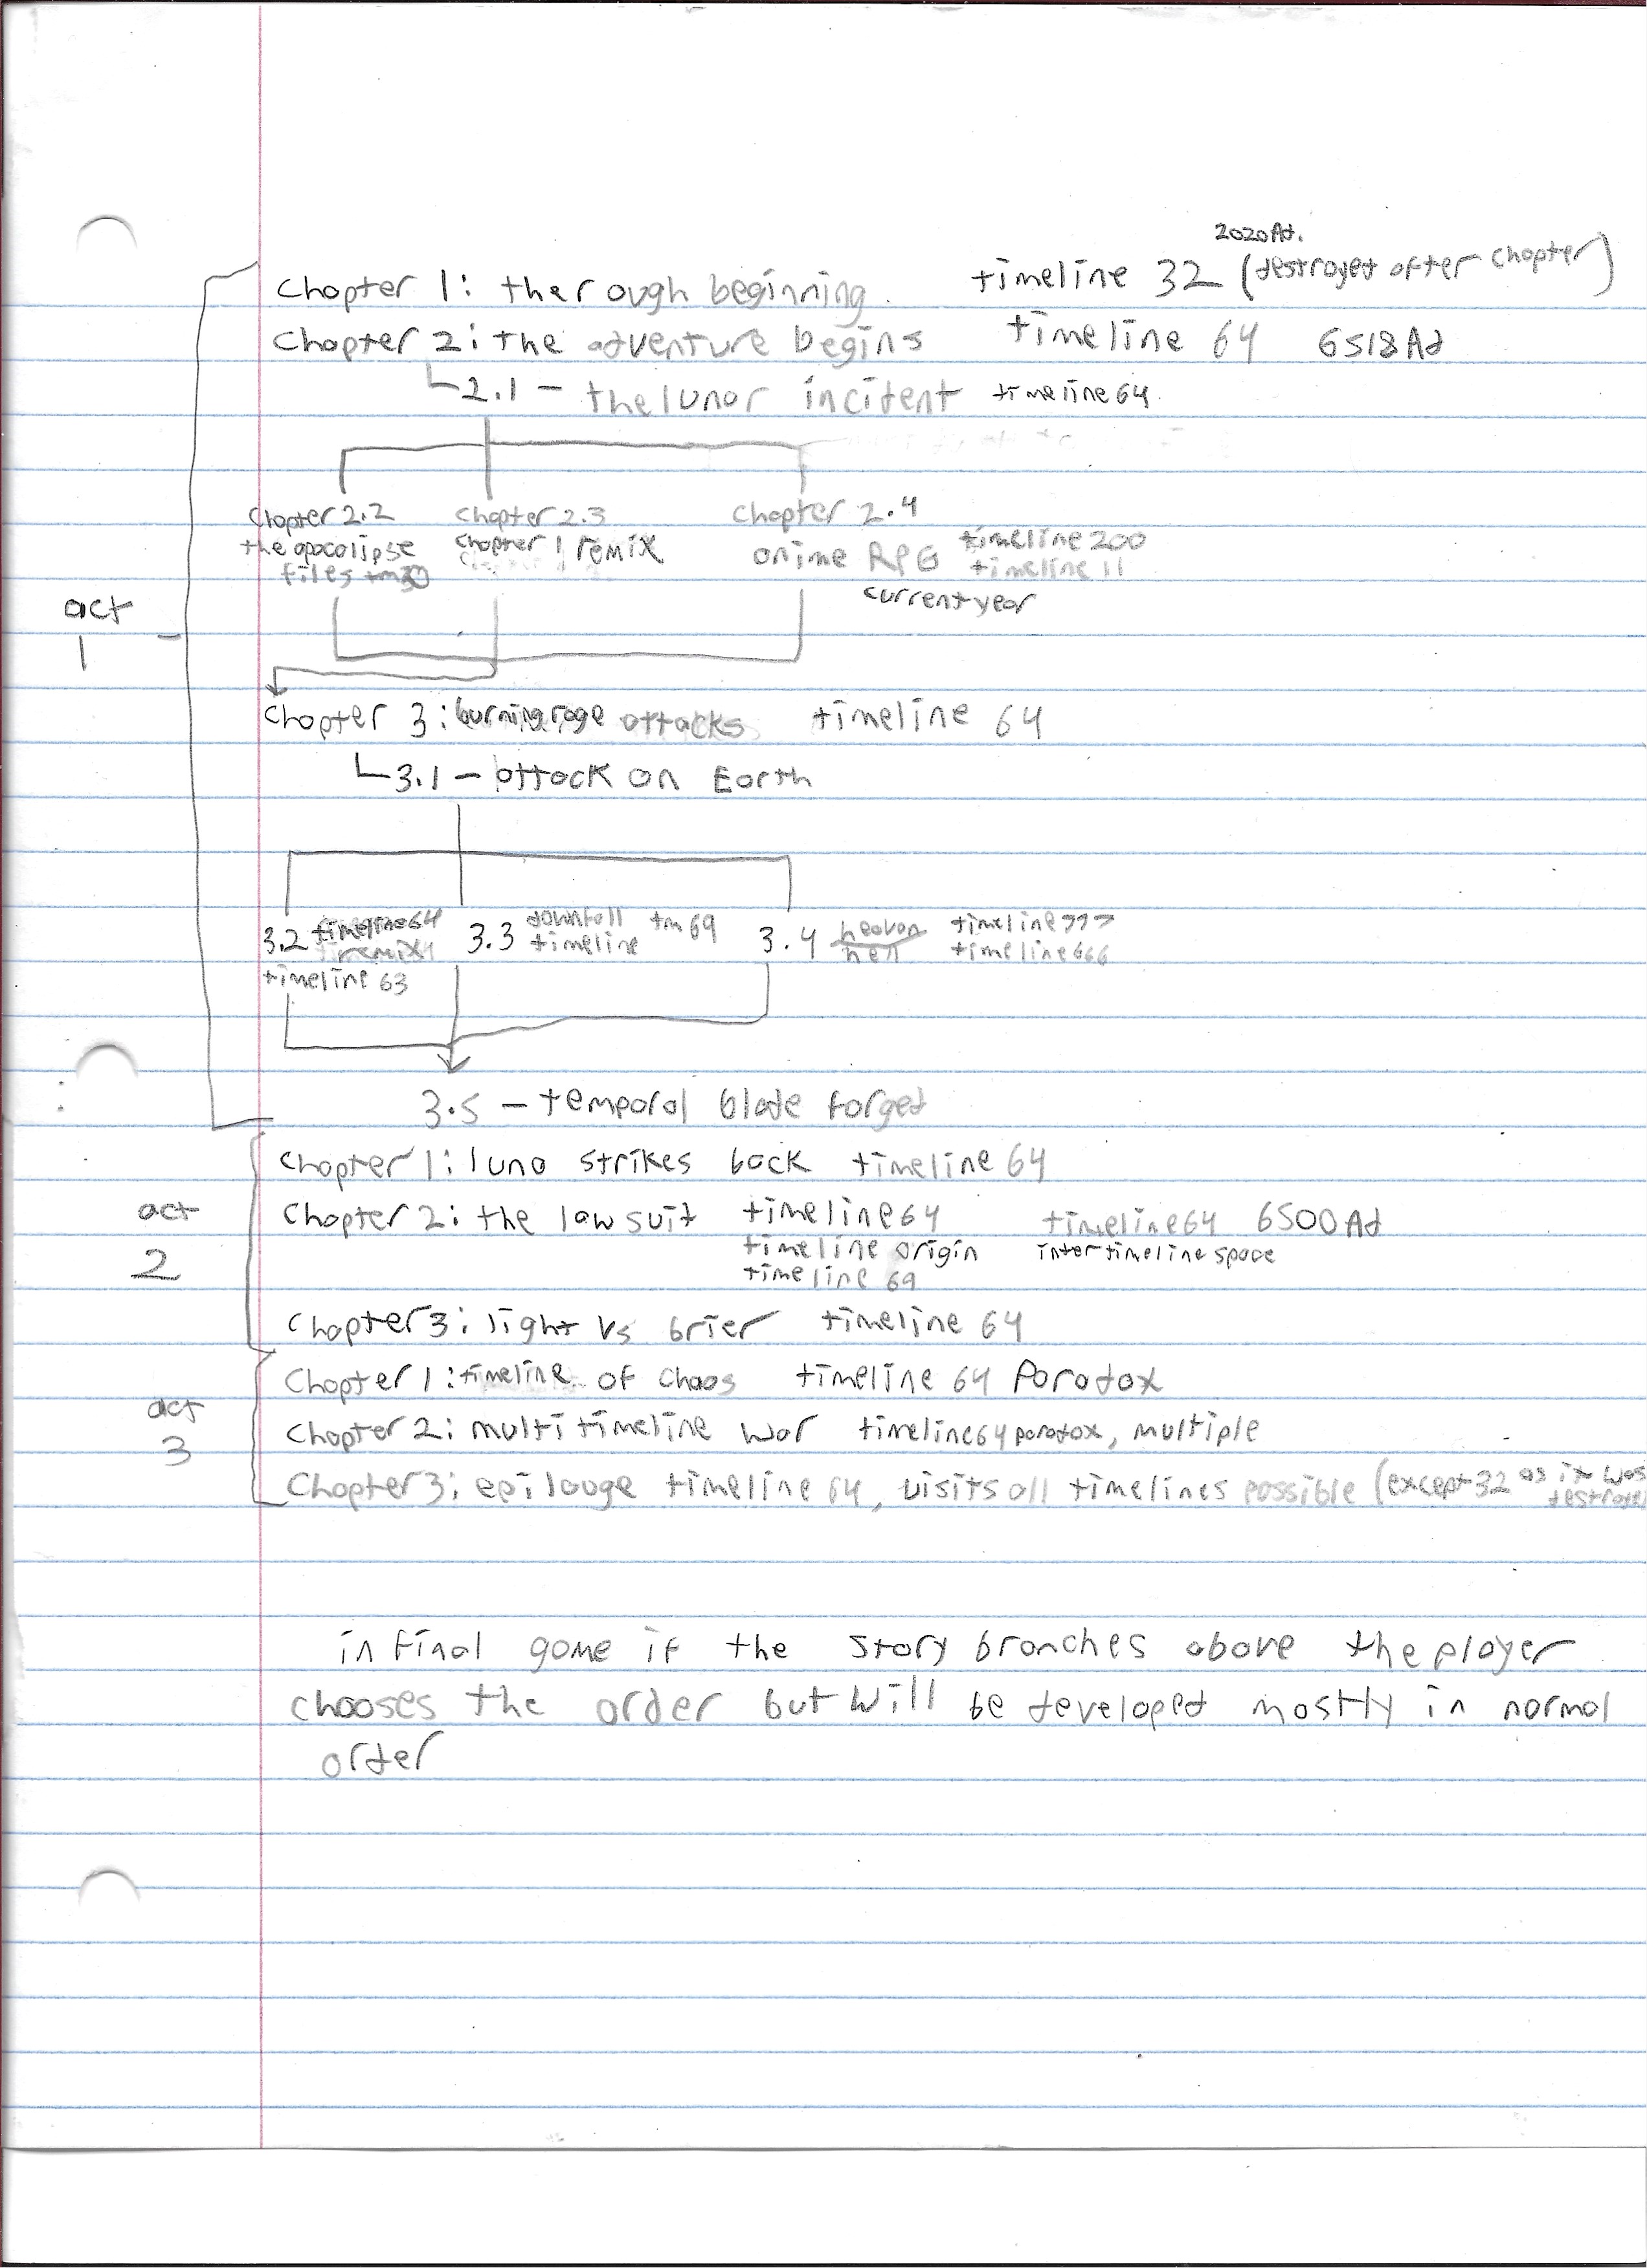 2020Ad.
chapter 1: the rough beginning. timeline 32 (destroyed after chapter)
chapter 2: the adventure begins timeline 64 6518Ad
2.1 - the lunar incident timeline 64
chapter 2.2 chapter 2.3 chapter 2.4
the apocalipse chapter 1 remix anime RPG timeline 200
files timeline 11
current year
act
1
chapter 3: burning rage attacks timeline 64
3.1 - attack on Earth
3.2 timeline 64 3.3 downfall tm 69 3.4 heaven timeline 777
remix timeline hell timeline 666
timeline 63
3.5 - temporal blade forged
chapter 1: luna strikes back timeline 64
act
2
chapter 2: the law suit timeline 64 timeline 64 6500Ad
timeline origin inter timeline space
timeline 69
chapter 3: light vs brier timeline 64
act
3
chapter 1: timeline of chaos timeline 64 Paradox
chapter 2: multi timeline war timeline 64 paradox, multiple
chapter 3: epilouge timeline 64, visits all timelines possible (except 32 as it was
in final game if the story branches above the player
chooses the order but will be developed mostly in normal
order